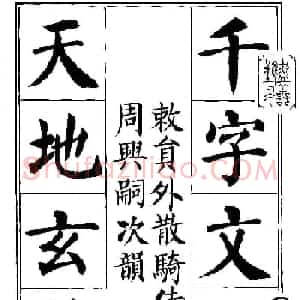 千字文
敕員外散騎侍
周興嗣次韻
天地玄
Shufaziliao.com